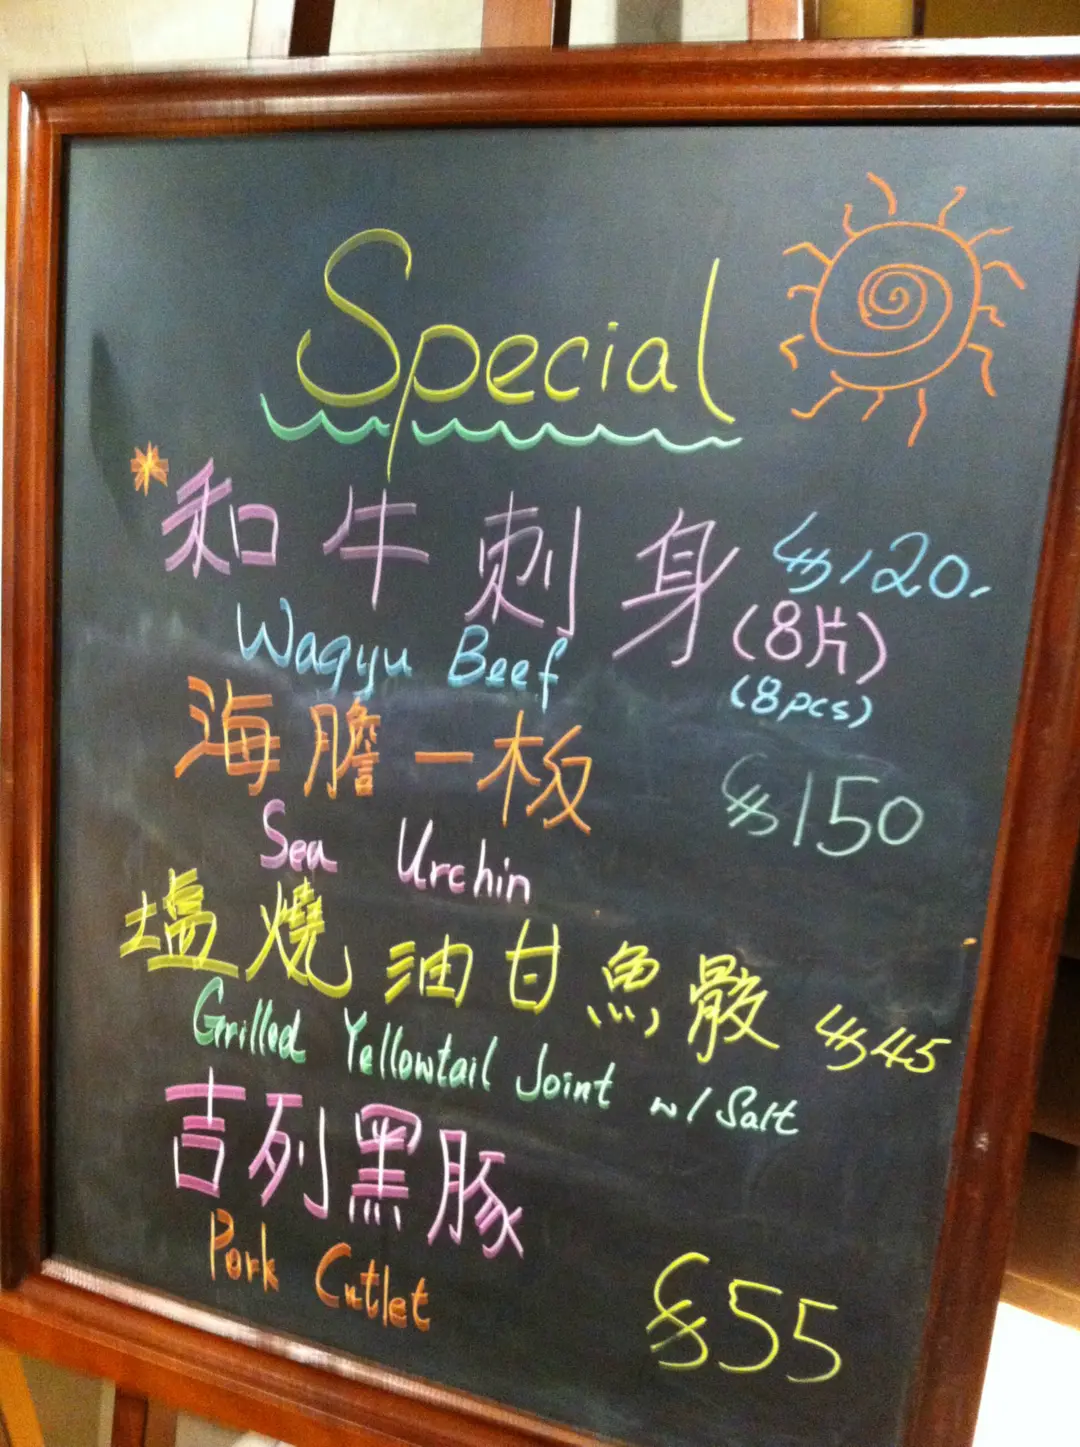 Special
*和牛刺身 $120.
Wagyu Beef (8片)
(8pcs)
海膽一板 $150
Sea Urchin
塩燒油甘魚骸 $45
Grilled Yellowtail Joint w/ Salt
吉列黑豚
Pork Cutlet $55